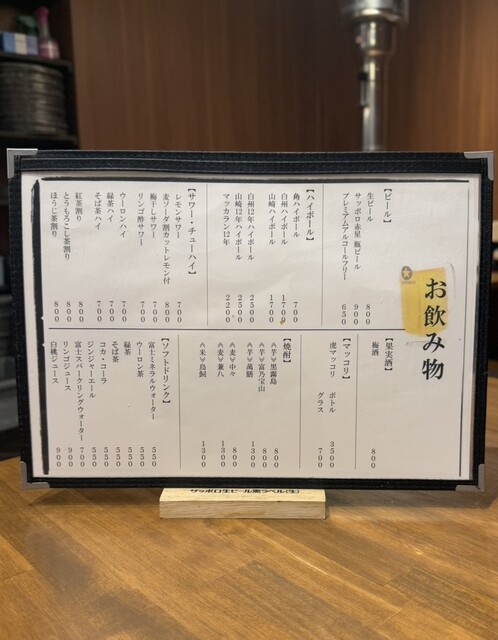 お飲み物
【ビール】
生ビール 800
サッポロ赤星 瓶ビール 900
プレミアムアルコールフリー 650
【ハイボール】
角ハイボール 700
白州ハイボール 1700
山崎ハイボール 1700
白州12年ハイボール 2500
山崎12年ハイボール 2500
マッカラン12年 2200
【サワー・チューハイ】
レモンサワー 700
麦ソーダ割カットレモン付 800
梅干しサワー 700
リンゴ酢サワー 700
ウーロンハイ 700
緑茶ハイ 700
そば茶ハイ 700
紅茶割り 800
とうもろこし茶割り 800
ほうじ茶割り 800
【果実酒】
梅酒 800
【マッコリ】
虎マッコリ ボトル 3500
グラス 700
【焼酎】
≪芋≫黒霧島 800
≪芋≫富乃宝山 800
≪芋≫萬膳 1300
≪麦≫中々 800
≪麦≫兼八 1300
≪米≫鳥飼 1300
【ソフトドリンク】
富士ミネラルウォーター 550
ウーロン茶 550
緑茶 550
そば茶 550
コカ・コーラ 550
ジンジャーエール 550
富士スパークリングウォーター 700
リンゴジュース 900
白桃ジュース 900
サッポロ生ビール黒ラベル〈生〉